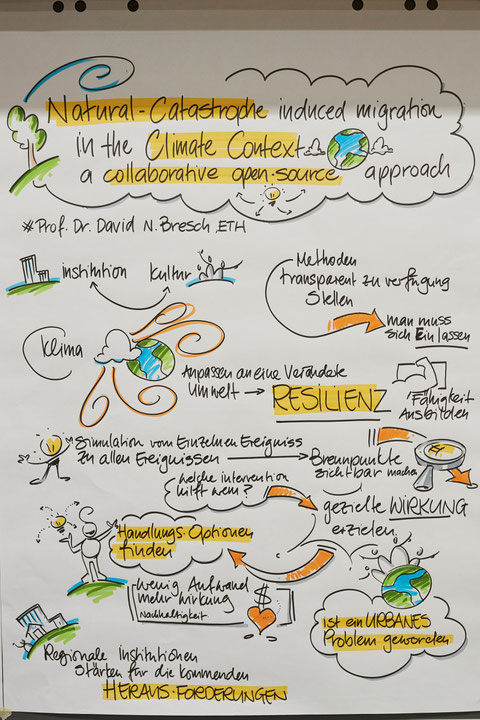 Natural-Catastrophe induced migration
in the Climate Context
a collaborative open-source approach
*Prof. Dr. David N. Bresch, ETH
institution
Kultur
Methoden
transparent zu verfügung
stellen
man muss
sich Einlassen
Klima
Anpassen an eine Veränderte
Umwelt → RESILIENZ
Fähigkeit
Ausbilden
Simulation vom Einzelnen Ereigniss
zu allen Ereignissen
Brennpunkte
sichtbar machen
welche intervention
hilft wem?
gezielte WIRKUNG
erzielen
Handlungs-Optionen
finden
wenig Aufwand
mehr Wirkung
Nachhaltigkeit
$
ist ein URBANES
Problem geworden
Regionale Institutionen
Stärken für die kommenden
HERAUS-FORDERUNGEN